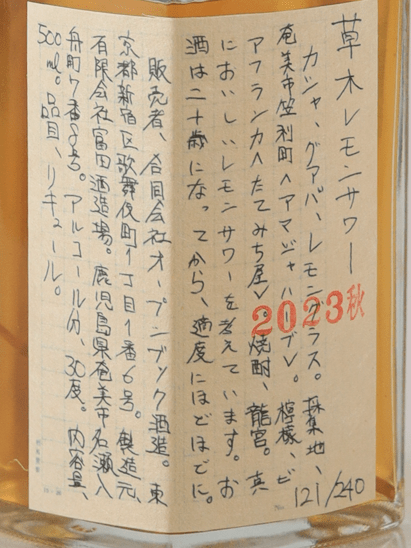 草木レモンサワー
カジャ、グアバ、レモングラス。採集地、
奄美市笠利町〈アマジャハーブ〉。檸檬、ビ
アフランカ〈たてみち屋〉焼酎、龍宮。真
においしいレモンサワーを考えています。お
酒は二十歳になってから、適度にほどほどに。
2023秋
121/240
販売者、合同会社オープンブック酒造。東
京都新宿区歌舞伎町1丁目1番6号。製造元、
有限会社富田酒造場。鹿児島県奄美市名瀬入
舟町7番8号。アルコール分、30度。内容量、
500ml。品目、リキュール。